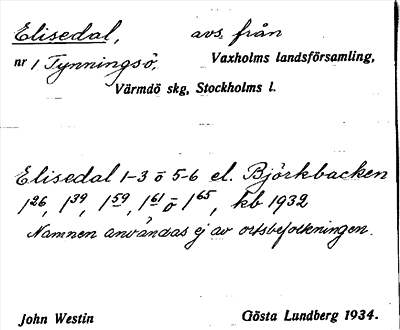 Elisedal, avs. från
nr 1 Tynningsö. Vaxholms landsförsamling,
Värmdö skg, Stockholms l.
Elisedal 1-3 o 5-6 el. Björkbacken
1²⁶, 1³⁹, 1⁵⁹, 1⁶¹ o 1⁶⁵, kb 1932
Namnen användas ej av ortsbefolkningen.
John Westin Gösta Lundberg 1934.